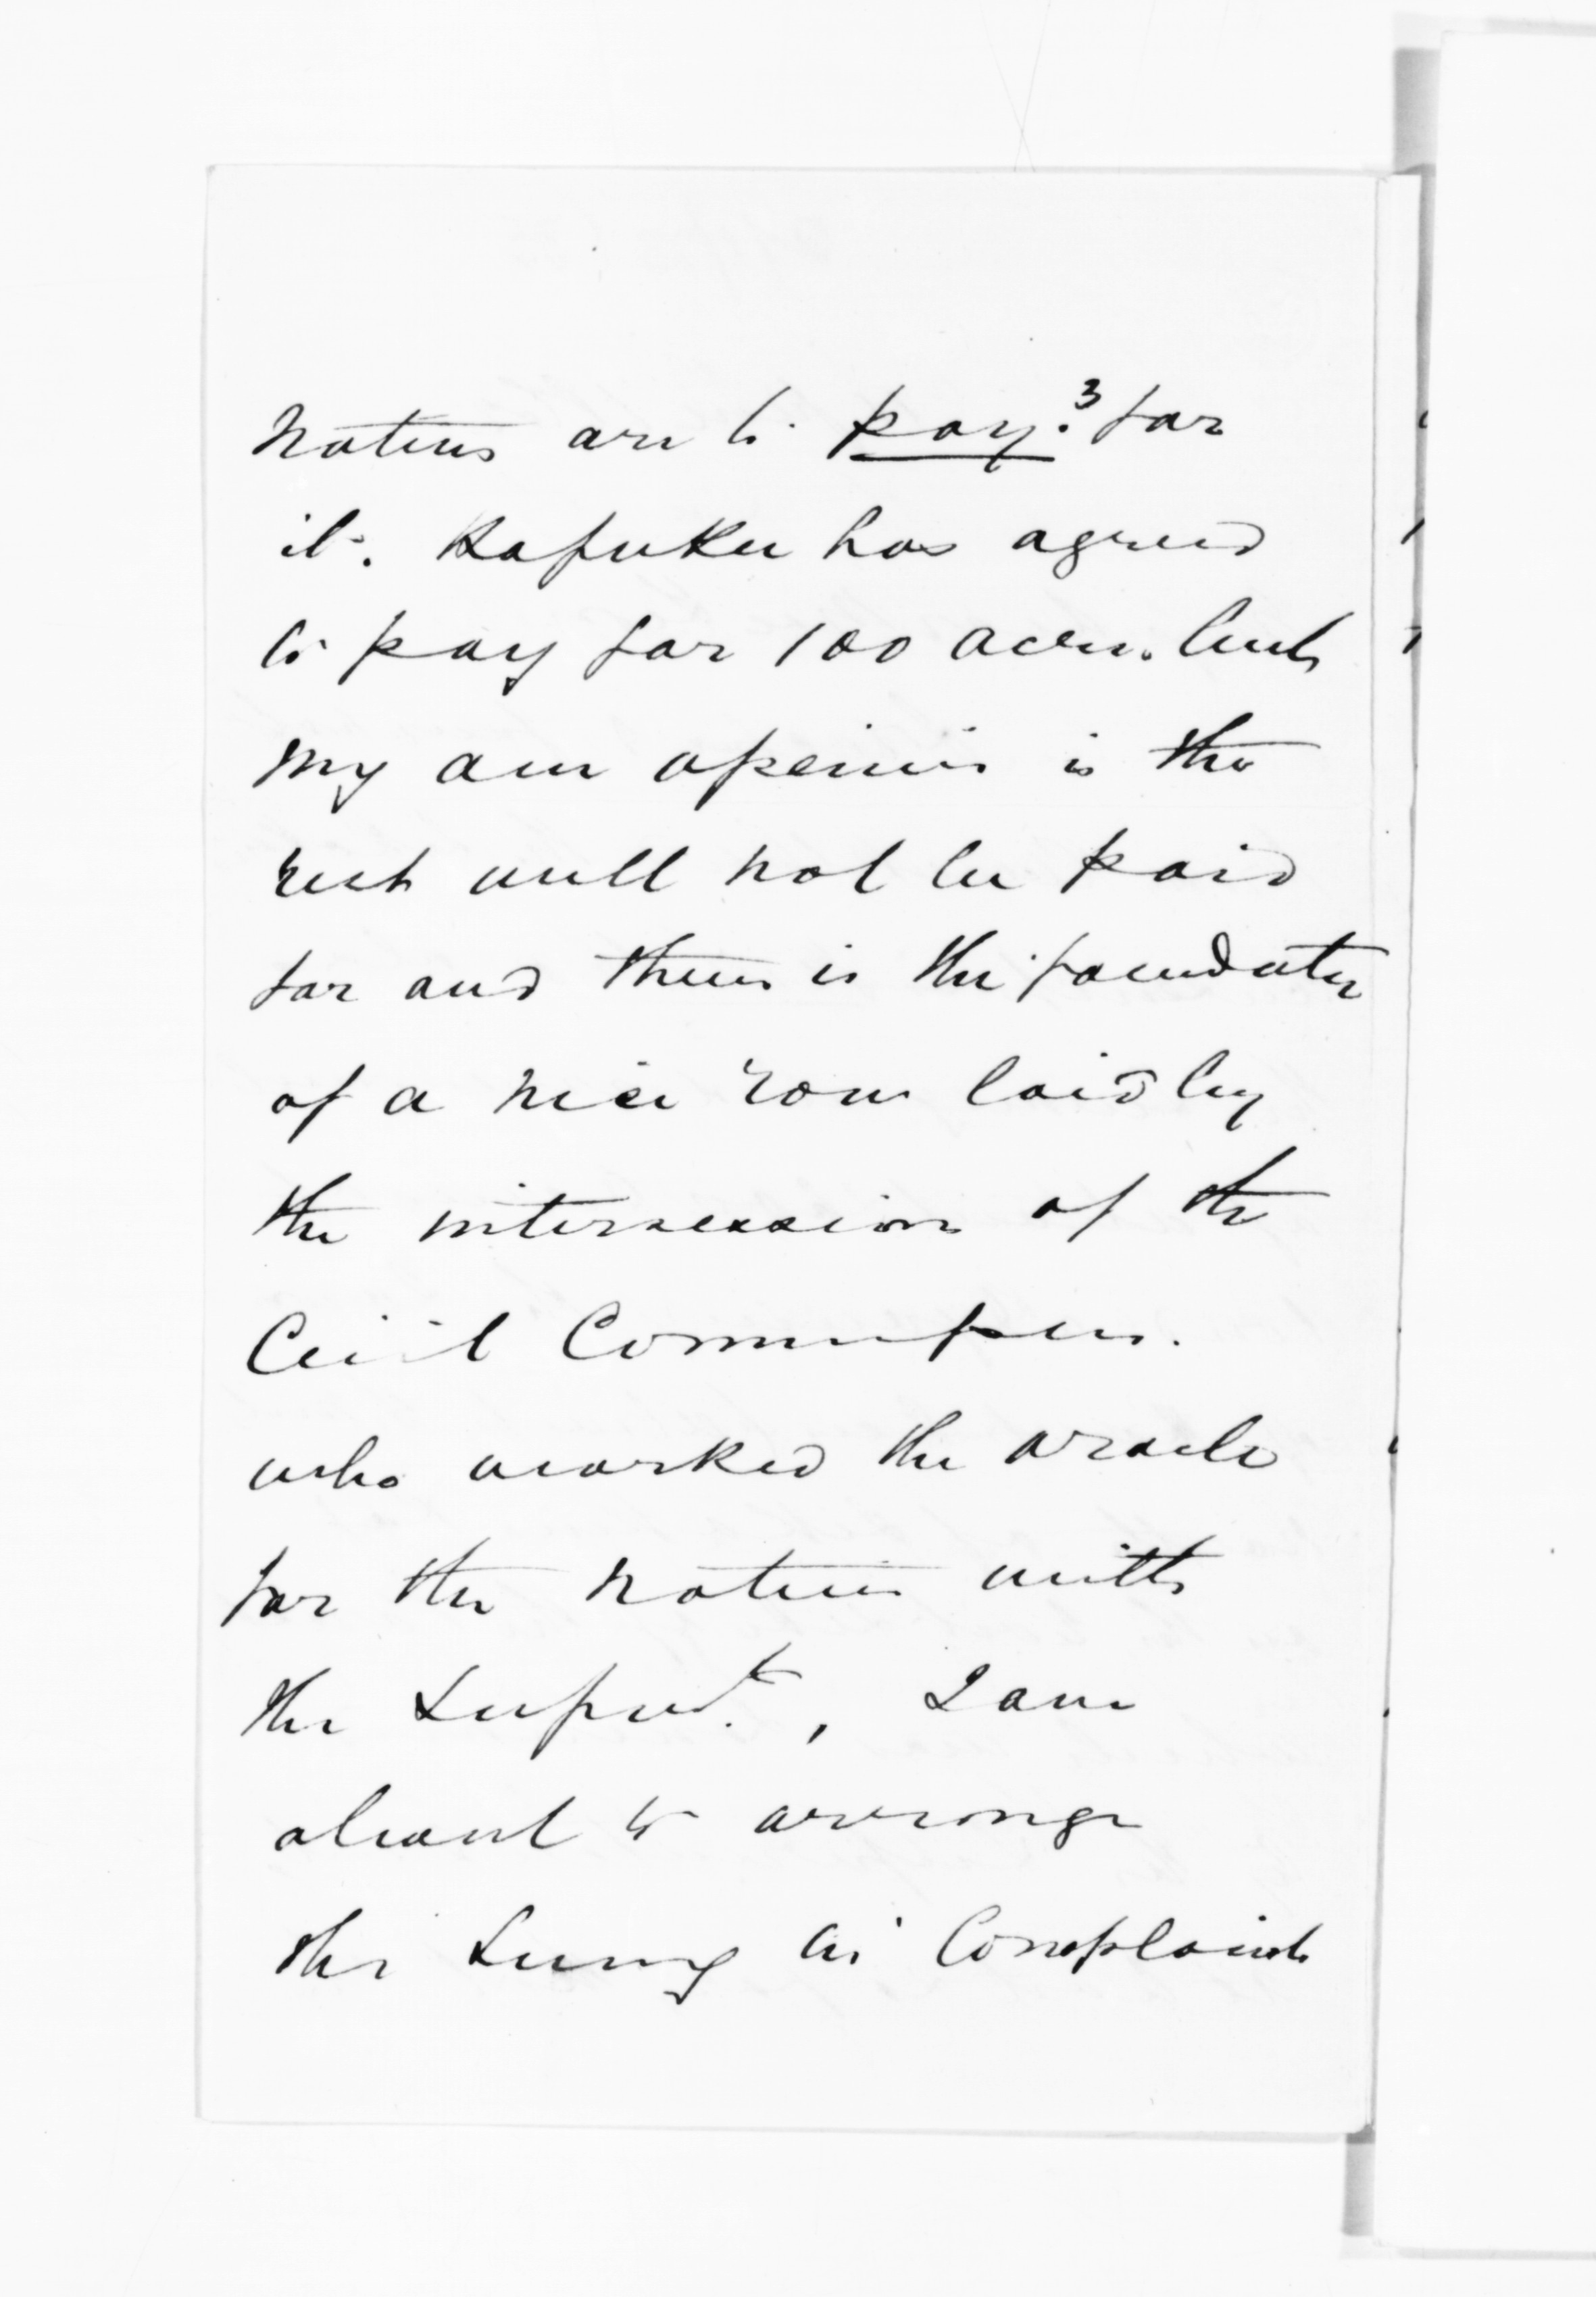 natives are to pay.³ for
it. Kapuku has agreed
to pay for 100 acres. but
my own opinion is the
rest will not be paid
for and there is the foundation
of a nice row laid by
the intersession of the
Civil Commissioner.
who worked the oracle
for the natives with
the Supert., I am
about to arrange
the Survey as Complaints